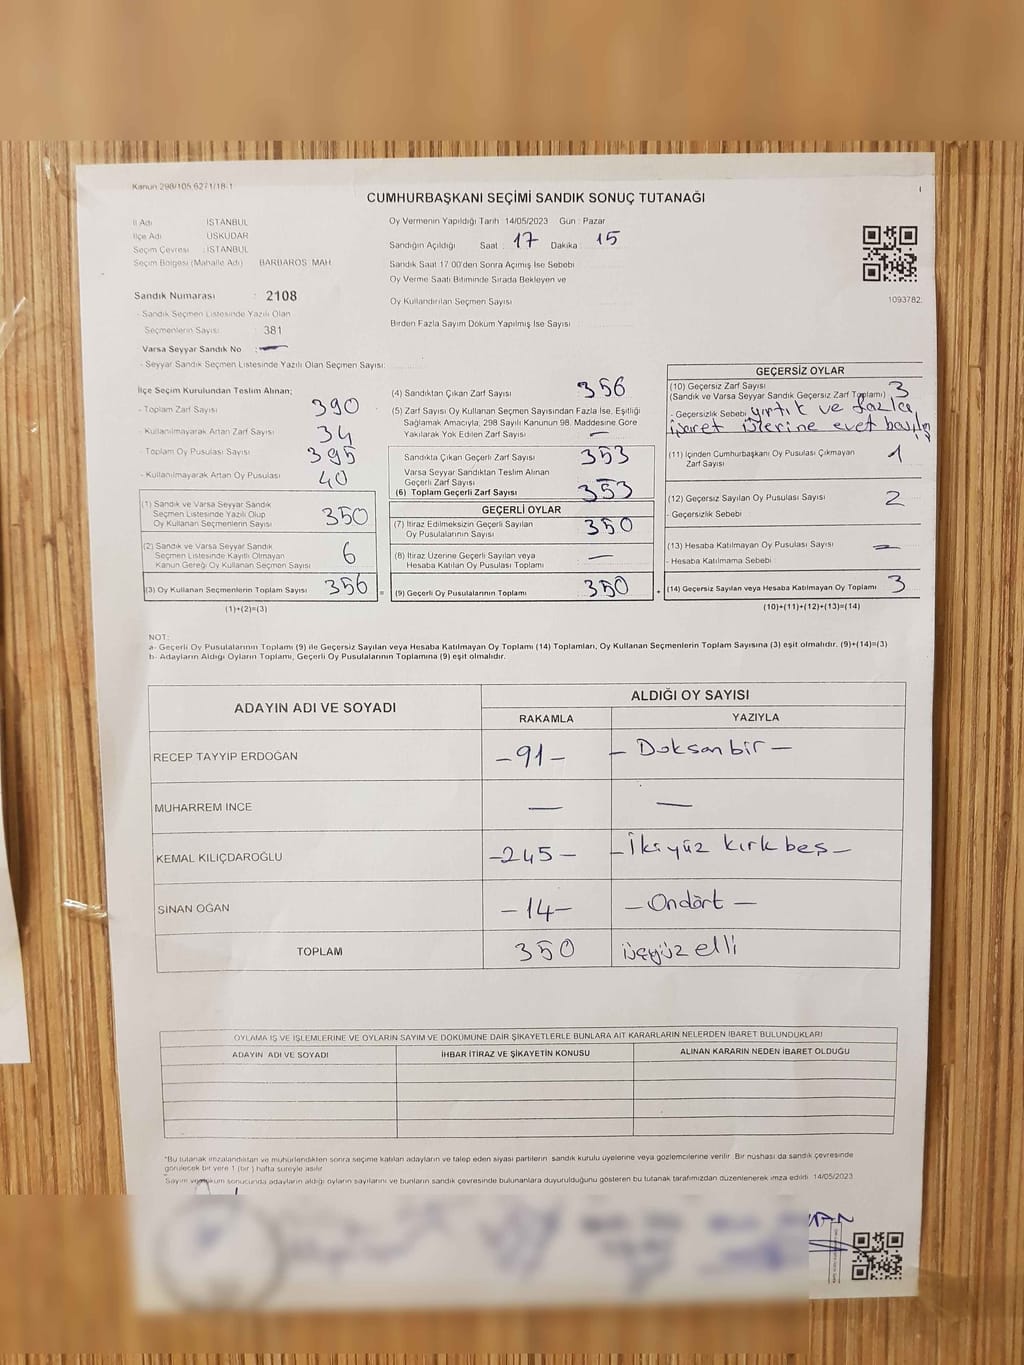 Kanun 298/105 6271/18-1
CUMHURBAŞKANI SEÇİMİ SANDIK SONUÇ TUTANAĞI
İl Adı : İSTANBUL
İlçe Adı : ÜSKÜDAR
Seçim Çevresi : İSTANBUL
Seçim Bölgesi (Mahalle Adı) BARBAROS MAH.
Sandık Numarası : 2108
- Sandık Seçmen Listesinde Yazılı Olan
Seçmenlerin Sayısı : 381
Varsa Seyyar Sandık No : —
- Seyyar Sandık Seçmen Listesinde Yazılı Olan Seçmen Sayısı:
Oy Vermenin Yapıldığı Tarih 14/05/2023 Gün : Pazar
Sandığın Açıldığı Saat : 17 Dakika : 15
Sandık Saat 17 00'den Sonra Açımış İse Sebebi
Oy Verme Saati Bitiminde Sırada Bekleyen ve
Oy Kullandırılan Seçmen Sayısı
Birden Fazla Sayım Döküm Yapılmış İse Sayısı
1093782
İlçe Seçim Kurulundan Teslim Alınan;
- Toplam Zarf Sayısı 390
- Kullanılmayarak Artan Zarf Sayısı 34
- Toplam Oy Pusulası Sayısı 395
- Kullanılmayarak Artan Oy Pusulası 40
(1) Sandık ve Varsa Seyyar Sandık
Seçmen Listesinde Yazılı Olup
Oy Kullanan Seçmenlerin Sayısı 350
(2) Sandık ve Varsa Seyyar Sandık
Seçmen Listesinde Kayıtlı Olmayan
Kanun Gereği Oy Kullanan Seçmen Sayısı 6
(3) Oy Kullanan Seçmenlerin Toplam Sayısı 356 =
(1)+(2)=(3)
(4) Sandıktan Çıkan Zarf Sayısı 356
(5) Zarf Sayısı Oy Kullanan Seçmen Sayısından Fazla İse, Eşitliği
Sağlamak Amacıyla, 298 Sayılı Kanunun 98. Maddesine Göre
Yakılarak Yok Edilen Zarf Sayısı —
Sandıkla Çıkan Geçerli Zarf Sayısı 353
Varsa Seyyar Sandıktan Teslim Alınan
Geçerli Zarf Sayısı
(6) Toplam Geçerli Zarf Sayısı 353
GEÇERLİ OYLAR
(7) İtiraz Edilmeksizin Geçerli Sayılan
Oy Pusulalarının Sayısı 350
(8) İtiraz Üzerine Geçerli Sayılan veya
Hesaba Katılan Oy Pusulası Toplamı —
(9) Geçerli Oy Pusulalarının Toplamı 350 +
GEÇERSİZ OYLAR
(10) Geçersiz Zarf Sayısı 3
(Sandık ve Varsa Seyyar Sandık Geçersiz Zarf Toplamı)
- Geçersizlik Sebebi yırtık ve fazla
işaret üzerine evet
(11) İçinden Cumhurbaşkanı Oy Pusulası Çıkmayan
Zarf Sayısı 1
(12) Geçersiz Sayılan Oy Pusulası Sayısı 2
- Geçersizlik Sebebi
(13) Hesaba Katılmayan Oy Pusulası Sayısı —
- Hesaba Katılmama Sebebi
(14) Geçersiz Sayılan veya Hesaba Katılmayan Oy Toplamı 3
(10)+(11)+(12)+(13)=(14)
NOT:
a- Geçerli Oy Pusulalarının Toplamı (9) ile Geçersiz Sayılan veya Hesaba Katılmayan Oy Toplamı (14) Toplamları, Oy Kullanan Seçmenlerin Toplam Sayısına (3) eşit olmalıdır. (9)+(14)=(3)
b- Adayların Aldığı Oyların Toplamı, Geçerli Oy Pusulalarının Toplamına (9) eşit olmalıdır.
ADAYIN ADI VE SOYADI ALDIĞI OY SAYISI
RAKAMLA YAZIYLA
RECEP TAYYİP ERDOĞAN -91- - Doksanbir -
MUHARREM İNCE — —
KEMAL KILIÇDAROĞLU -245- - İkiyüz kırkbeş -
SİNAN OĞAN -14- - Ondört -
TOPLAM 350 üçyüz elli
OYLAMA İŞ VE İŞLEMLERİNE VE OYLARIN SAYIM VE DÖKÜMÜNE DAİR ŞİKAYETLERLE BUNLARA AİT KARARLARIN NELERDEN İBARET BULUNDUKLARI
ADAYIN ADI VE SOYADI İHBAR İTİRAZ VE ŞİKAYETİN KONUSU ALINAN KARARIN NEDEN İBARET OLDUĞU
*Bu tutanak imzalandıktan ve mühürlendikten sonra seçime katılan adayların ve talep eden siyasi partilerin sandık kurulu üyelerine veya gözlemcilerine verilir. Bir nüshası da sandık çevresinde
görülecek bir yere 1 (bir ) hafta süreyle asılır
*Sayım ve döküm sonucunda adayların aldığı oyların sayılarını ve bunların sandık çevresinde bulunanlara duyurulduğunu gösteren bu tutanak tarafımızdan düzenlenerek imza edildi. 14/05/2023